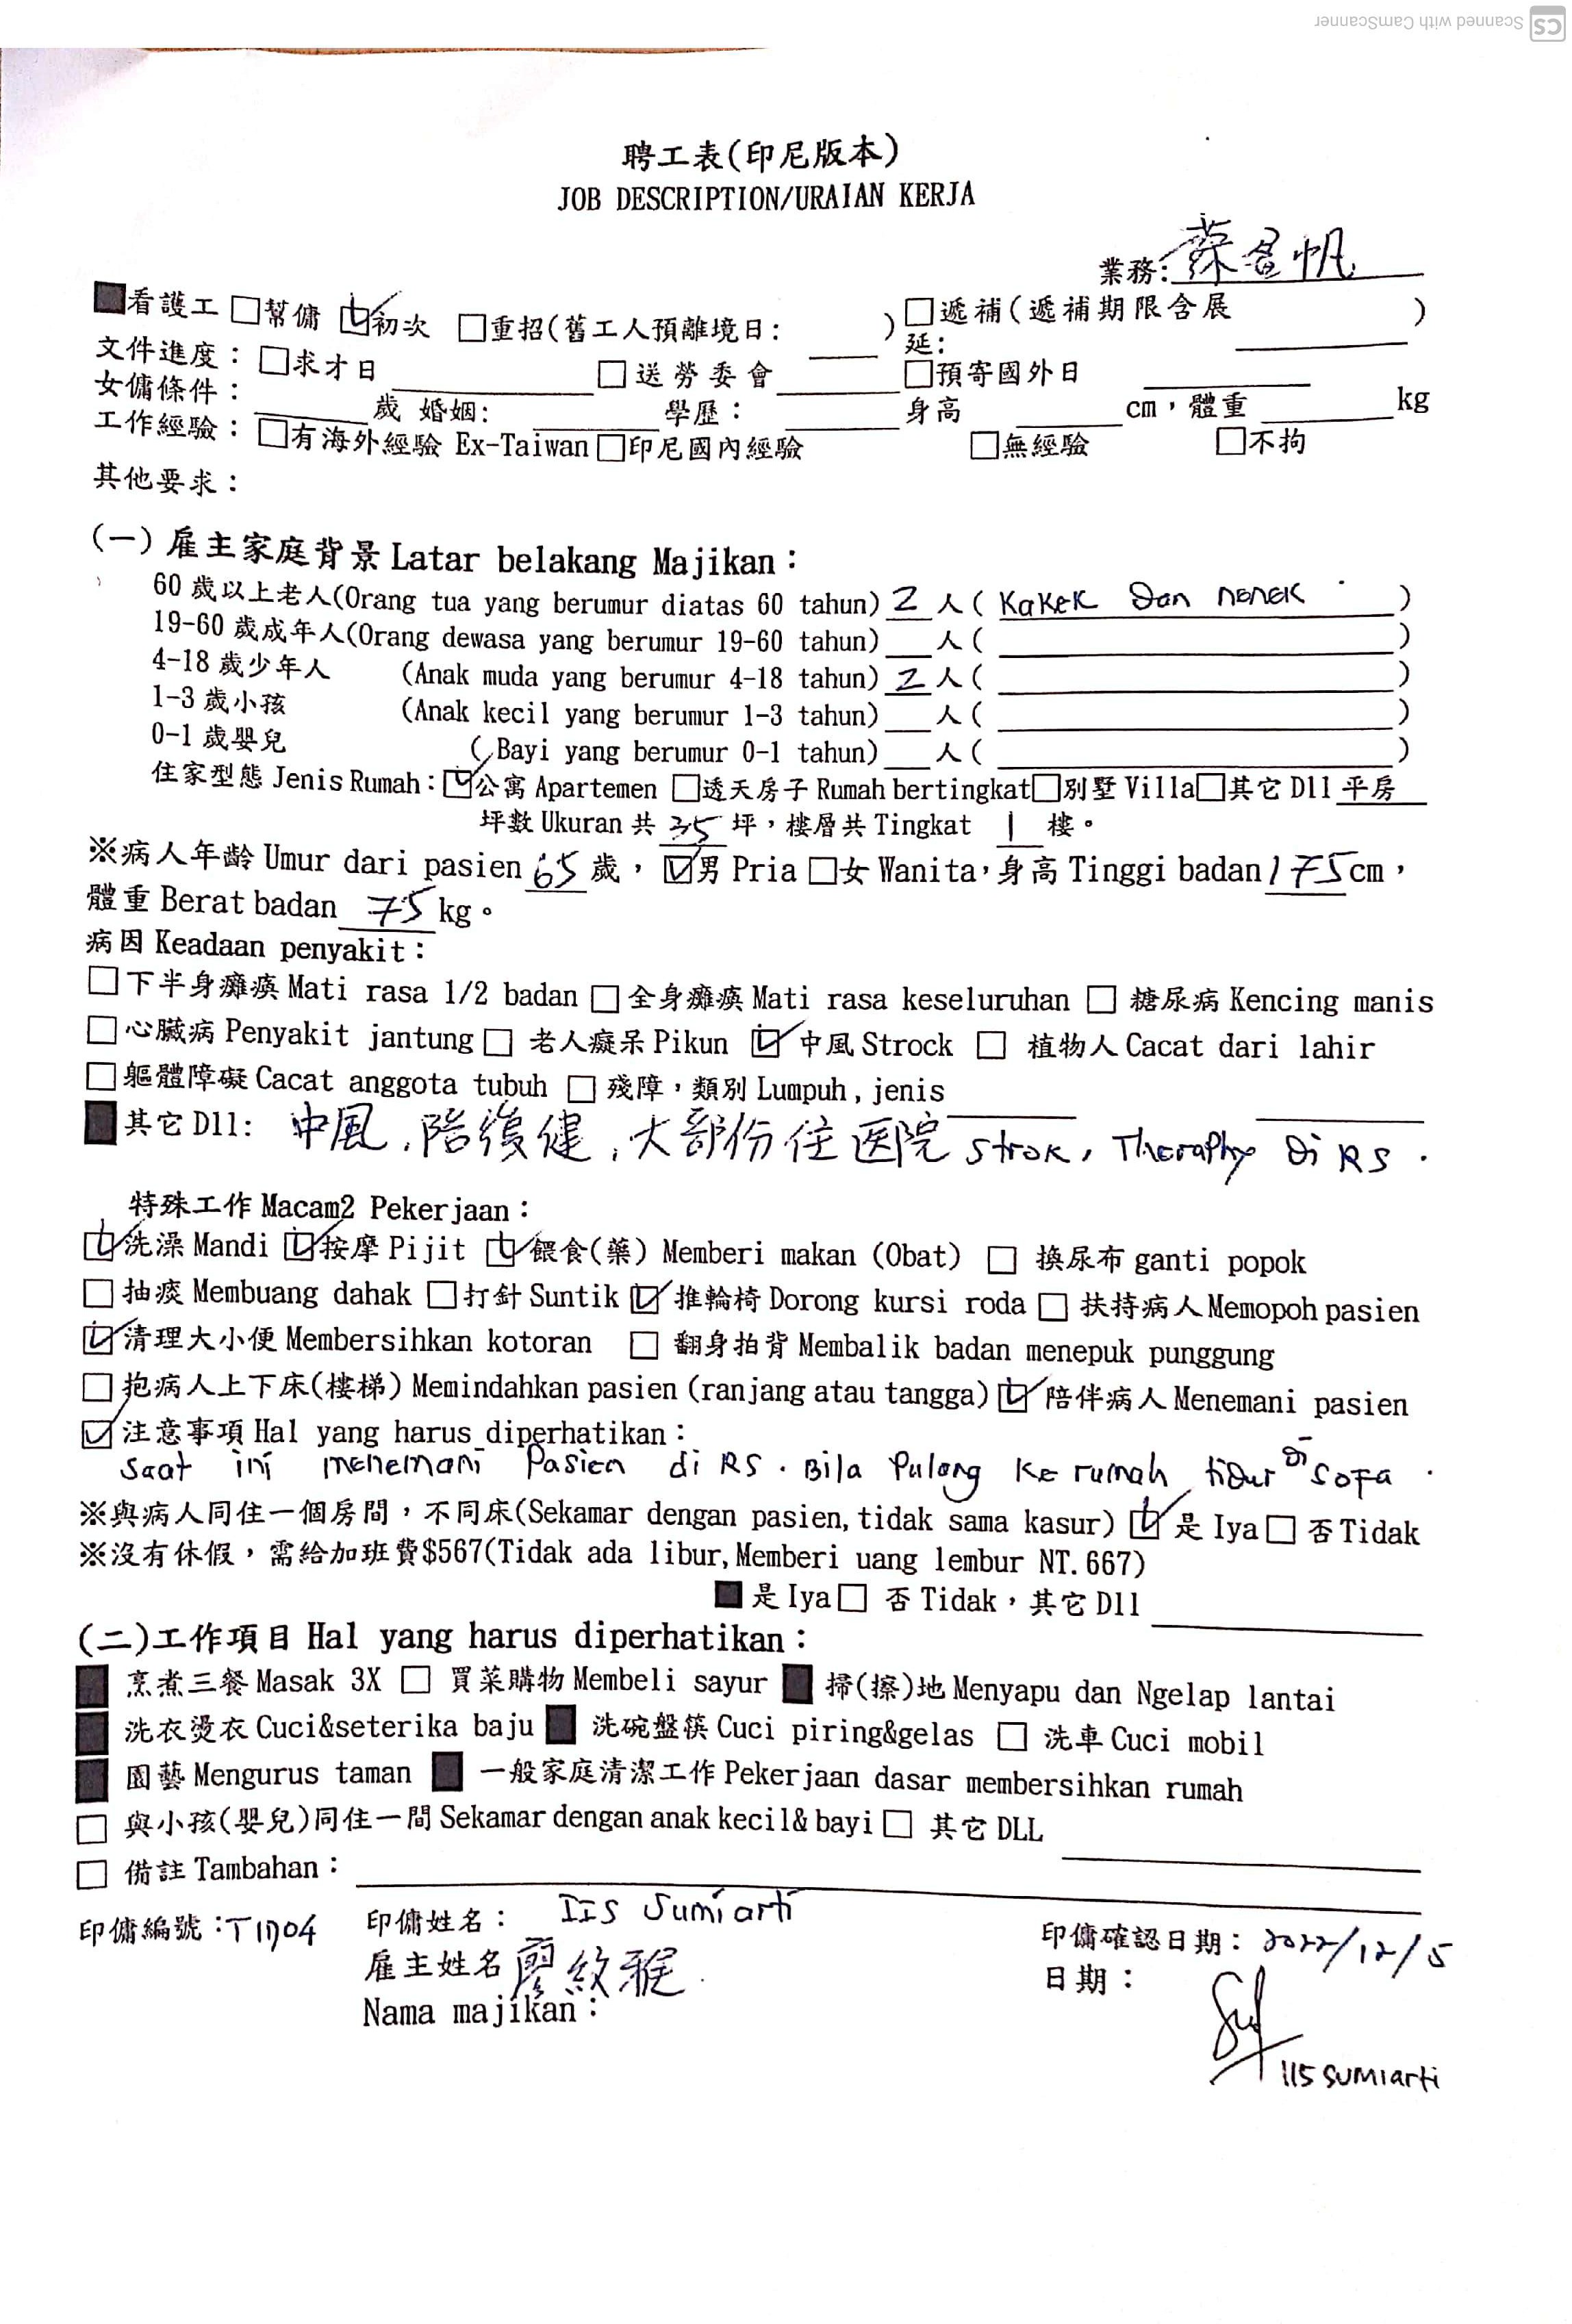 Scanned with CamScanner
聘工表(印尼版本)
JOB DESCRIPTION/URAIAN KERJA
業務:
■看護工 □幫傭 ☑初次 □重招(舊工人預離境日: ) □遞補(遞補期限含展延: )
文件進度: □求才日 □送勞委會 □預寄國外日
女傭條件: 歲 婚姻: 學歷: 身高 cm,體重 kg
工作經驗: □有海外經驗 Ex-Taiwan □印尼國內經驗 □無經驗 □不拘
其他要求:
(一)雇主家庭背景 Latar belakang Majikan:
60 歲以上老人(Orang tua yang berumur diatas 60 tahun) 2 人( Kakek Dan nenek )
19-60 歲成年人(Orang dewasa yang berumur 19-60 tahun) 人( )
4-18 歲少年人 (Anak muda yang berumur 4-18 tahun) 2 人( )
1-3 歲小孩 (Anak kecil yang berumur 1-3 tahun) 人( )
0-1 歲嬰兒 ( Bayi yang berumur 0-1 tahun) 人( )
住家型態 Jenis Rumah: ☑公寓 Apartemen □透天房子 Rumah bertingkat □別墅 Villa □其它 Dll 平房
坪數 Ukuran 共 35 坪,樓層共 Tingkat 1 樓。
※病人年齡 Umur dari pasien 65 歲, ☑男 Pria □女 Wanita,身高 Tinggi badan 175 cm,
體重 Berat badan 75 kg。
病因 Keadaan penyakit:
□下半身癱瘓 Mati rasa 1/2 badan □全身癱瘓 Mati rasa keseluruhan □ 糖尿病 Kencing manis
□心臟病 Penyakit jantung □ 老人癡呆 Pikun ☑ 中風 Strock □ 植物人 Cacat dari lahir
□軀體障礙 Cacat anggota tubuh □ 殘障,類別 Lumpuh, jenis
■其它 Dll: 中風,陪復健,大部份住医院 strok, Theraphy Di RS.
特殊工作 Macam2 Pekerjaan:
☑洗澡 Mandi ☑按摩 Pijit ☑餵食(藥) Memberi makan (Obat) □ 換尿布 ganti popok
□抽痰 Membuang dahak □打針 Suntik ☑推輪椅 Dorong kursi roda □ 扶持病人 Memopoh pasien
☑清理大小便 Membersihkan kotoran □ 翻身拍背 Membalik badan menepuk punggung
□抱病人上下床(樓梯) Memindahkan pasien (ranjang atau tangga) ☑陪伴病人 Menemani pasien
☑注意事項 Hal yang harus diperhatikan:
Saat ini menemani Pasien di RS. Bila Pulang Ke rumah tidur Di SOFA.
※與病人同住一個房間,不同床(Sekamar dengan pasien, tidak sama kasur) ☑是 Iya □ 否 Tidak
※沒有休假,需給加班費$567(Tidak ada libur, Memberi uang lembur NT. 667)
■是 Iya □ 否 Tidak,其它 Dll
(二)工作項目 Hal yang harus diperhatikan:
■ 烹煮三餐 Masak 3X □ 買菜購物 Membeli sayur ■ 掃(擦)地 Menyapu dan Ngelap lantai
■ 洗衣燙衣 Cuci&seterika baju ■ 洗碗盤筷 Cuci piring&gelas □ 洗車 Cuci mobil
■ 園藝 Mengurus taman ■ 一般家庭清潔工作 Pekerjaan dasar membersihkan rumah
□ 與小孩(嬰兒)同住一間 Sekamar dengan anak kecil& bayi □ 其它 DLL
□ 備註 Tambahan:
印傭編號: 印傭姓名: IIS Sumiarti 印傭確認日期: 2022/12/5
雇主姓名 日期:
Nama majikan:
IIS SUMIarti